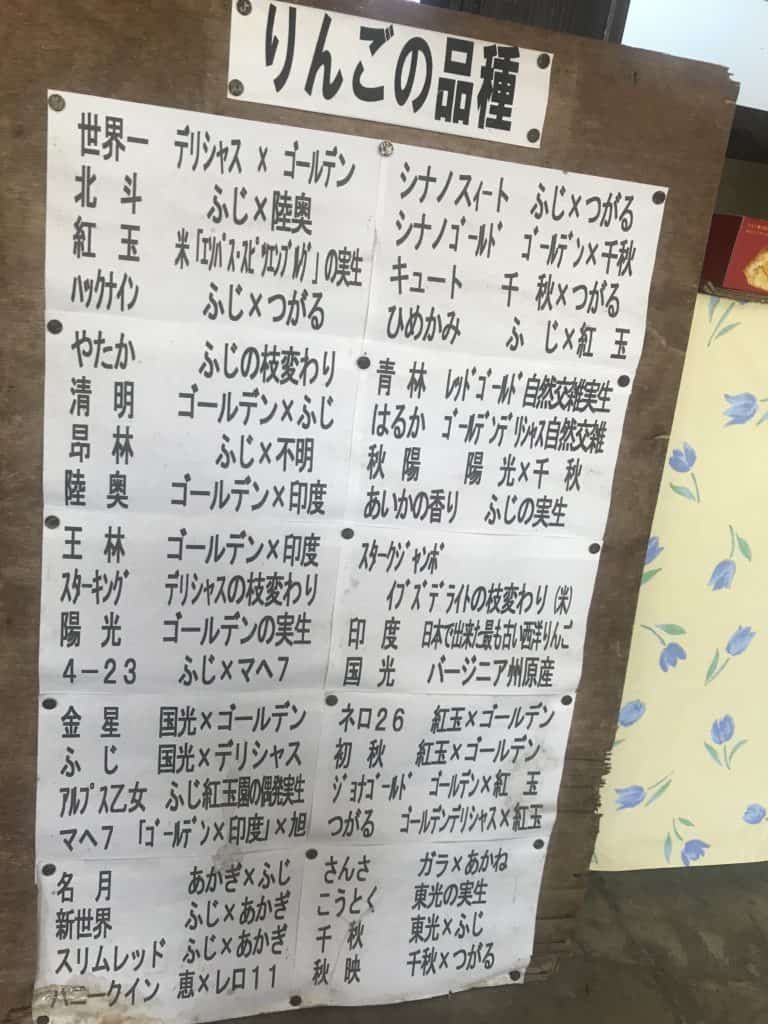 りんごの品種
世界一 デリシャス × ゴールデン
北斗 ふじ×陸奥
紅玉 米「エソパス・スピツエンブルグ」の実生
ハックナイン ふじ×つがる
やたか ふじの枝変わり
清明 ゴールデン×ふじ
昂林 ふじ×不明
陸奥 ゴールデン×印度
王林 ゴールデン×印度
スターキング デリシャスの枝変わり
陽光 ゴールデンの実生
4-23 ふじ×マヘ7
金星 国光×ゴールデン
ふじ 国光×デリシャス
アルプス乙女 ふじ紅玉園の偶発実生
マヘ7 「ゴールデン×印度」×旭
名月 あかぎ×ふじ
新世界 ふじ×あかぎ
スリムレッド ふじ×あかぎ
ハニークイン 恵×レロ11
シナノスィート ふじ×つがる
シナノゴールド ゴールデン×千秋
キュート 千秋×つがる
ひめかみ ふじ×紅玉
青林 レッドゴールド自然交雑実生
はるか ゴールデンデリシャス自然交雑
秋陽 陽光×千秋
あいかの香り ふじの実生
スタークジャンボ
イブズデライトの枝変わり(米)
印度 日本で出来た最も古い西洋りんご
国光 バージニア州原産
ネロ26 紅玉×ゴールデン
初秋 紅玉×ゴールデン
ジョナゴールド ゴールデン×紅玉
つがる ゴールデンデリシャス×紅玉
さんさ ガラ×あかね
こうとく 東光の実生
千秋 東光×ふじ
秋映 千秋×つがる